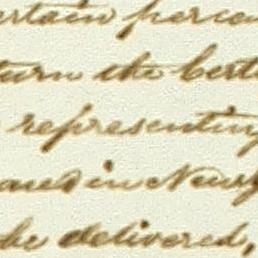 ertain perce
turn the cert
representing
ares in Newy
be delivered,